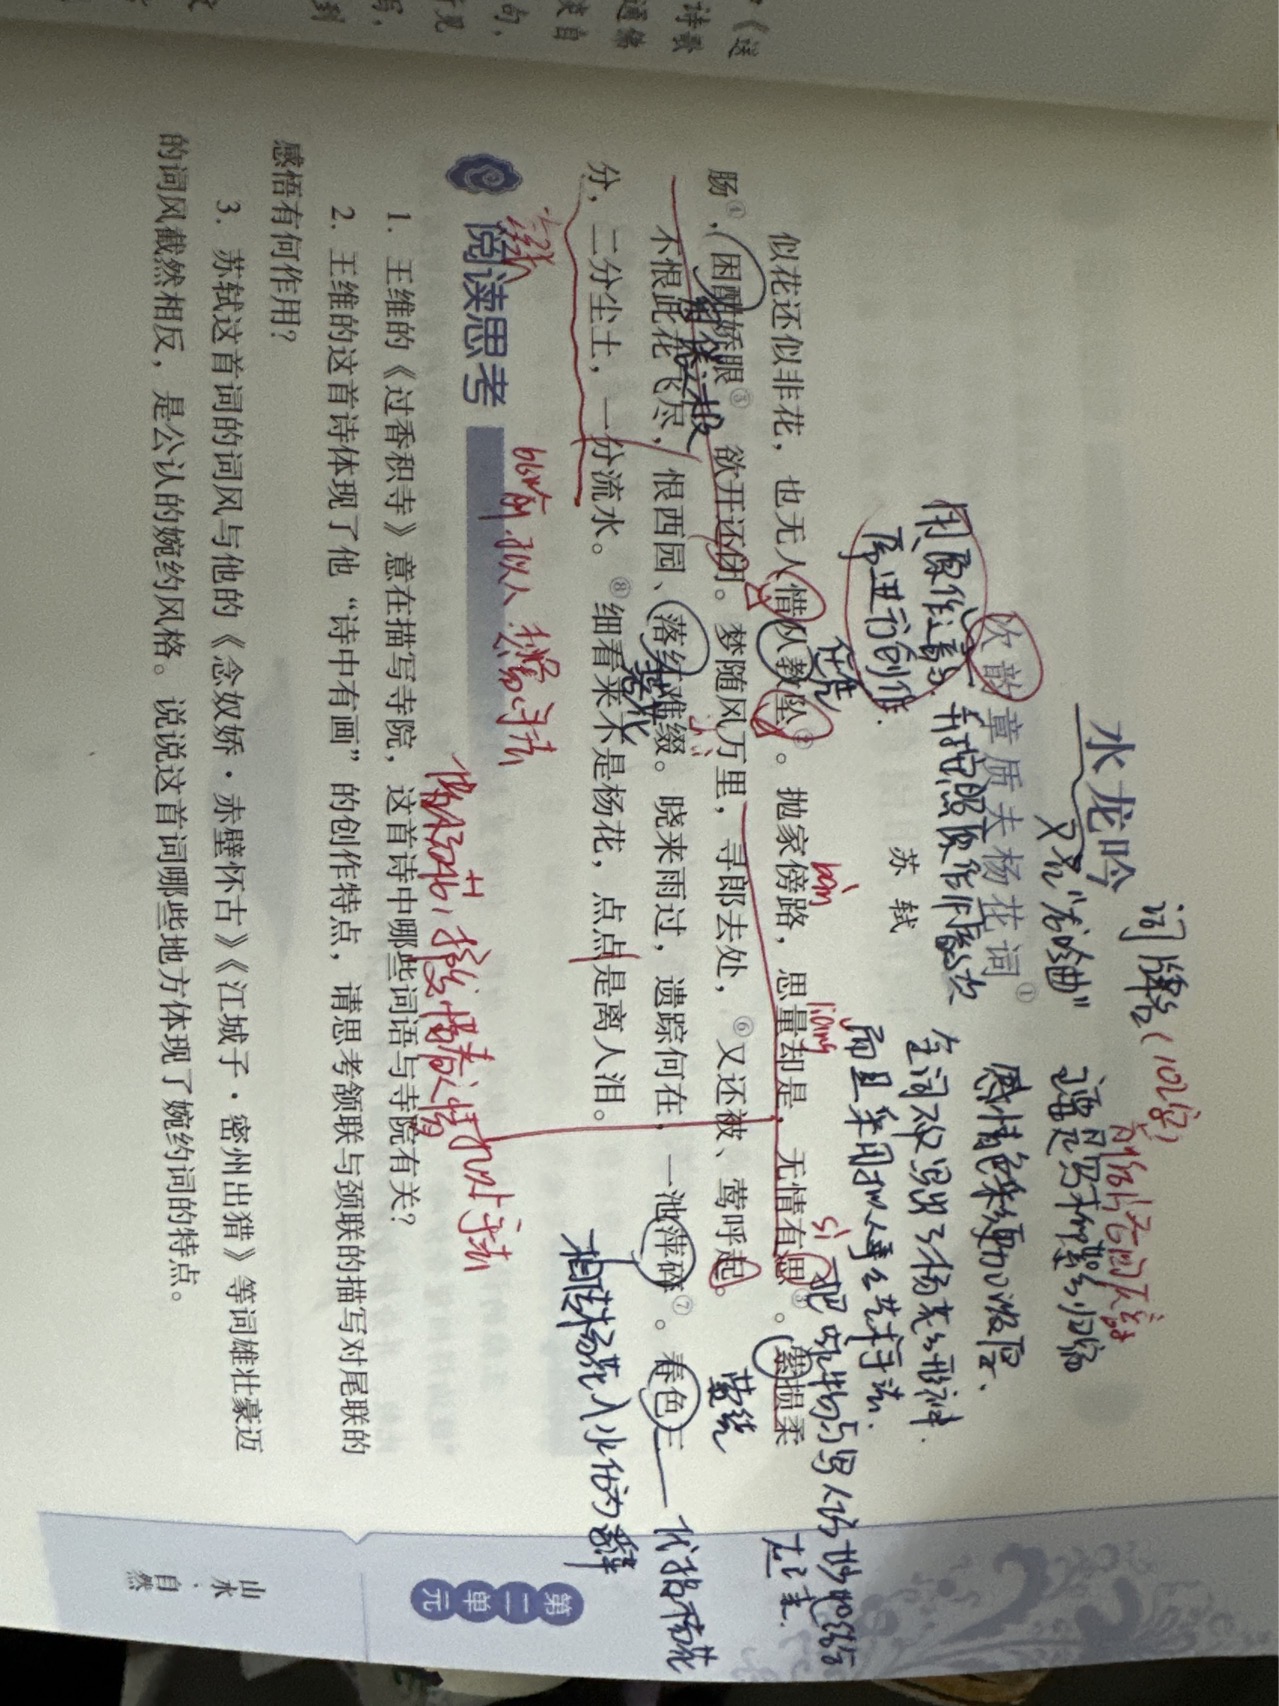 水龙吟
次韵章质夫杨花词①
苏轼
似花还似非花，也无人惜从教坠②。抛家傍路，思量却是，无情有思③。萦损柔
肠④，困酣娇眼⑤，欲开还闭。梦随风万里，寻郎去处，⑥又还被、莺呼起。
不恨此花飞尽，恨西园、落红难缀。晓来雨过，遗踪何在，一池萍碎⑦。春色三
分，二分尘土，一分流水。⑧细看来不是杨花，点点是离人泪。
阅读思考
1. 王维的《过香积寺》意在描写寺院，这首诗中哪些词语与寺院有关？
2. 王维的这首诗体现了他“诗中有画”的创作特点，请思考颔联与颈联的描写对尾联的
感悟有何作用？
3. 苏轼这首词的词风与他的《念奴娇·赤壁怀古》《江城子·密州出猎》等词雄壮豪迈
的词风截然相反，是公认的婉约风格。说说这首词哪些地方体现了婉约词的特点。
第二单元
山水、自然
词牌名(102字)
又名“龙吟曲”
用原作之韵，并按照原作用韵次
序进行创作.
全词不仅写出了杨花之形神.
而且采用拟人手法艺术手法.
把咏物与写人巧妙地结合
起来.
bàng
liàng
sì
任凭
萦绕
困倦之极
落花
相传杨花入水化为浮萍
代指杨花
比喻.拟人.夸张手法